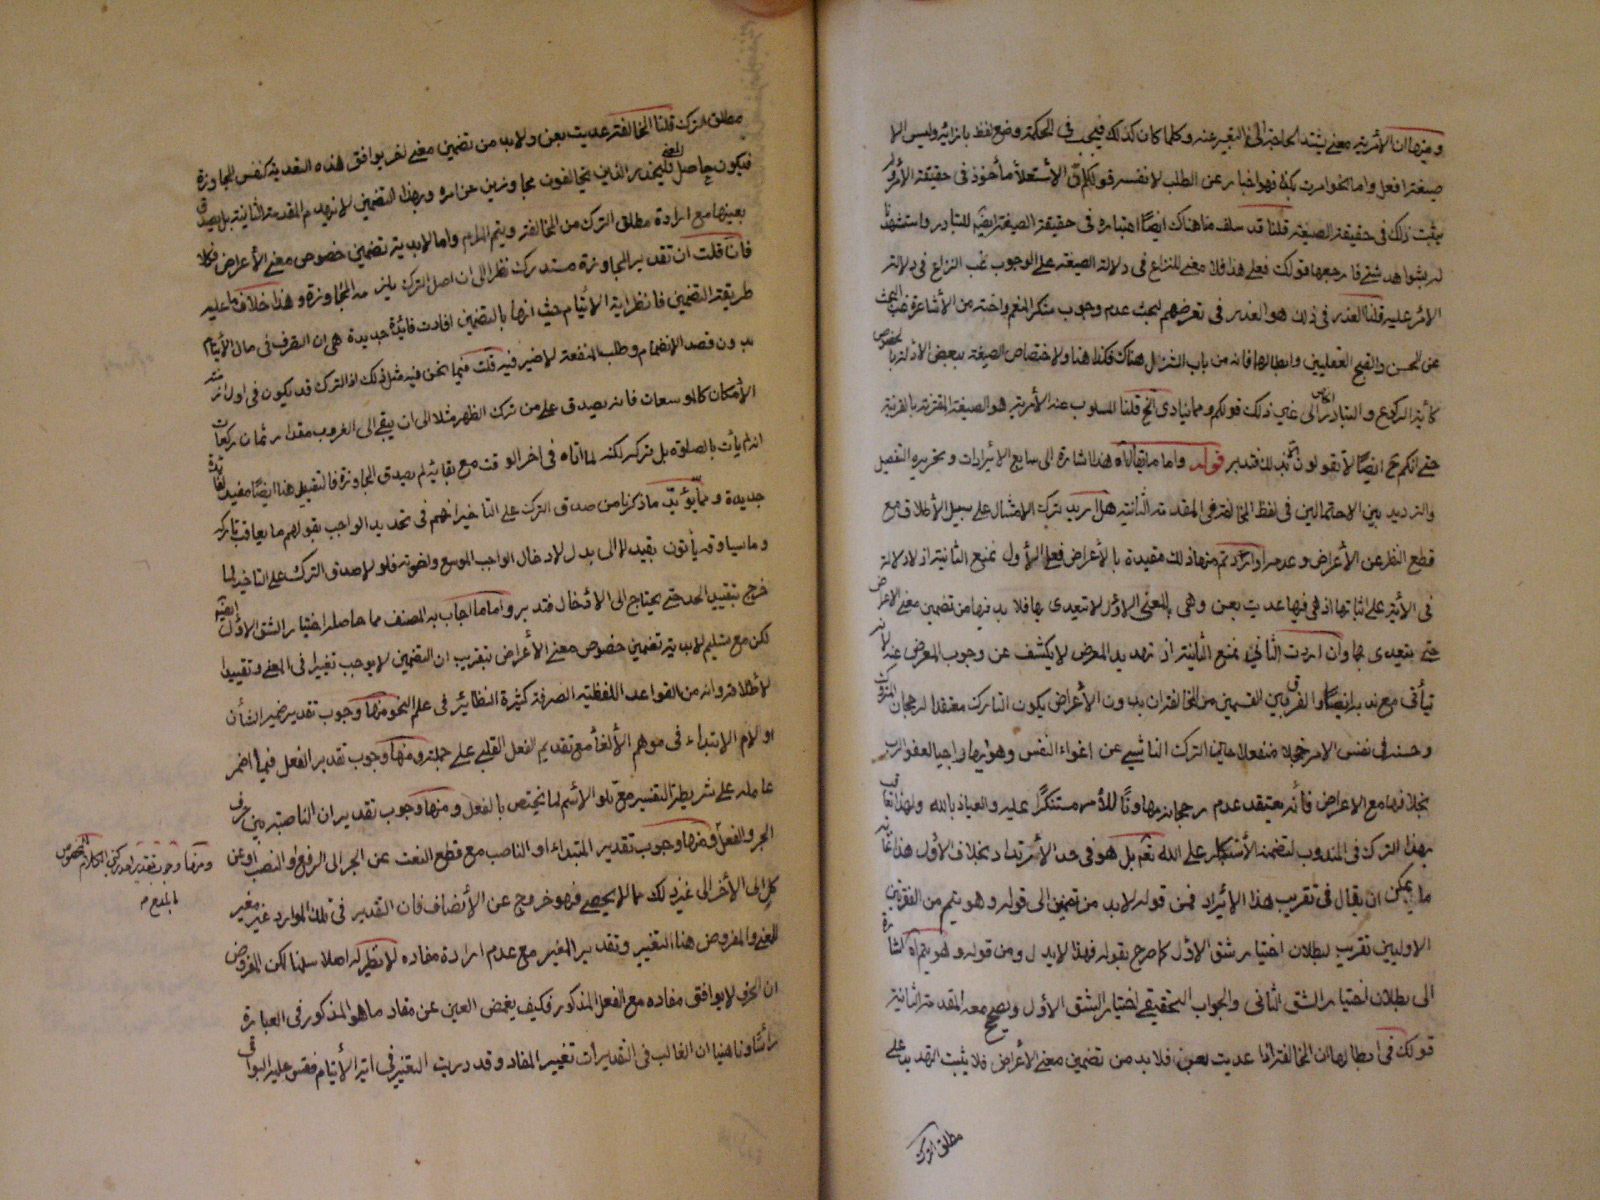 ومنها ان الأمرية معنى يشتد الحاجة الى التعبير عنه وكلما كان كذلك فيجب في الحكمة وضع لفظ بازائه وليس الا
صيغة افعل واما الجواب بكذا فهو اخبار عن الطلب لا نفسه قولكم الاستعلاء مأخوذ في حقيقة الأمر
يثبت ذلك في حقيقة الصيغة قلنا قد سلف منا هناك ايضًا اعتباره في حقيقة الصيغة ايضًا للتبادر واستشهدنا
له بشواهد شتى فارجعها قولك فعلى هذا فلا معنى للنزاع في دلالة الصيغة على الوجوب غب النزاع في دلالة
الامر عليه قلنا العذر في ذلك هو العذر في تعرضهم لبحث عدم وجوب شكر المنعم واخته من الأشاعرة غب البحث
عن الحسن والقبح العقليين وابطالهما فانه من باب التنزل هناك فكذا هنا ولاختصاص الصيغة ببعض الادلة بالخصوص
كآية الركوع والتبادر الى غير ذلك قولكم ومما ينادى الخ قلنا المسلوب عنه الأمرية هو الصيغة المقترنة بالقرينة
حتى انكم ايضًا لا تقولون بذلك فتدبر قوله واما ما يقال اه هذا اشارة الى سابع الايرادات وتحريره التفصيل
والترديد بين الاحتمالين في لفظ المخالفة في المقدمة الثانية هل اريد بترك الامتثال على سبيل الأطلاق مع
قطع النظر عن الأعراض وعدمه او اردتم منها ذلك مقيدة بالأعراض فعلى الأول نمنع الثانية اذ لا دلالة
في الآية على اثباتها اذ هي فيها عديت بعن وهي بالمعنى الاول لا تتعدى بها فلا بد فيها من تضمين معنى الاعراض
حتى يتعدى بها وان اردت الثاني نمنع الثانية اذ تهديد المعرض لا يكشف عن وجوب المعرض عنه لانه
يتأتى مع ندبه ايضًا والفرق بين القسمين من المخالفة ان بدون الأعراض يكون التارك معتقدا لرجحان المتروك
وحسنه في نفس الامر خجلا منفعلا عن الترك الناشي عن اغواء النفس وهواها راجيا لعفو الرب
بخلافها مع الاعراض فأنه يعتقد عدم رجحانه مهاونًا للأمر مستنكرًا عليه والعياذ بالله ولهذا يعاقب
بهذا الترك في المندوب لتضمنه الأستكبار على الله نعم بل هو في حد الأرتداد بخلاف الأول هذا غاية
ما يمكن ان يقال في تقريب هذا الأيراد فمن قوله لابد من تضمين الى قوله وهو يتم من الفقرتين
الاوليين تقريب لبطلان اختيار شق الاول كما صرح بقوله فهذا لا يدل ومن قوله ولهو يتم اه اشارة
الى بطلان اختيار الشق الثاني والجواب التحقيقي اختيار الشق الأول ويصح معه المقدمة الثانية
قولك في ابطالها ان المخالفة اذا عديت بعن فلا بد من تضمين معنى الاعراض فلا يثبت التهديد على
مطلق الترك
مطلق الترك قلنا المخالفة عديت بعن ولابد من تضمين معنى لغر يوافق هذه التعدية كنفس المجاوزة
فيكون حاصل المعنى فليحذر الذين يخالفون مجاوزين عن امره وبهذا التضمين لا تهدم المقدمة الثانية بل يصدق
بعينها مع ارادة مطلق الترك من المخالفة ويتم المرام واما لابدية تضمين خصوص معنى الأعراض فكلا
فان قلت ان تقدير المجاوزة مستدرك نظرا الى ان اصل الترك يلزمه المجاوزة وهذا خلاف ما عليه
طريقة التضمين فانظر اية الايتام حيث انها بالتضمين افادت فائدة جديدة هي ان التصرف في مال الأيتام
بدون قصد الانضمام وطلب المنفعة لا ضير فيه قلت فيما نحن فيه مثل ذلك اذ الترك قد يكون في اول ازمنة
الأمكان كالموسعات فانه يصدق على من ترك الظهر مثلا الى ان يبقى الى الغروب مقدار ثمان ركعات
انه لم يأت بالصلوة بل تركه لكنه لما اتاه في اخر الوقت مع بقائه لم يصدق المجاوزة فالتقييد هنا ايضًا مفيد لفائدة
جديدة ومما يؤيد ما ذكرنا من صدق الترك على التأخير اخذهم في تحديد الواجب بقولهم ما يعاقب تاركه
وما يساوقه يأتون بقيد لا الى بدل لادخال الواجب الموسع واخوته فلو لا صدق الترك على التأخير لما
خرج بتقييد الحد حتى يحتاج الى الادخال فتدبر واما ما اجاب به المصنف مما حاصله اختيار الشق الاول ايضًا
لكن مع تسليم لابدية تضمين خصوص معنى الأعراض بتقريب ان التضمين لا يوجب تغييرا في المعنى وتقييدا
لاطلاقه وانه من القواعد اللفظية الصرفة كثيرة النظائر في علم النحو منها وجوب تقدير ضمير الشأن
او لام الابتداء في موهم الألغاء مع تقديم الفعل القلبي على جملته ومنها وجوب تقدير الفعل فيما اضمر
عامله على شريطة التفسير مع تلو الأسم لما يختص بالفعل ومنها وجوب تقدير ان الناصبة بين حرف
الجر والفعل ومنها وجوب تقدير المبتداء او الناصب مع قطع النعت عن الجر الى الرفع او النصب او عن
كل الى الأخر الى غير ذلك مما لا يحصى فهو خروج عن الأنصاف فان التقدير في تلك الموارد غير مغير
للمعنى والمفروض هنا التغيير وتقدير المغير مع عدم ارادة مفاده لا نظير له اصلا سلمنا لكن المفروض
ان الحرف لا يوافق مفاده مع الفعل المذكور فكيف يغمض العين عن مفاد ما هو المذكور في العبارة
ان الغالب في التقديرات تغيير المفاد وقد دريت التغير في اية الأيتام فقس عليه البواقي
ومنها وجوب تقدير احد ركني الكلام المخصوص
بالمدح